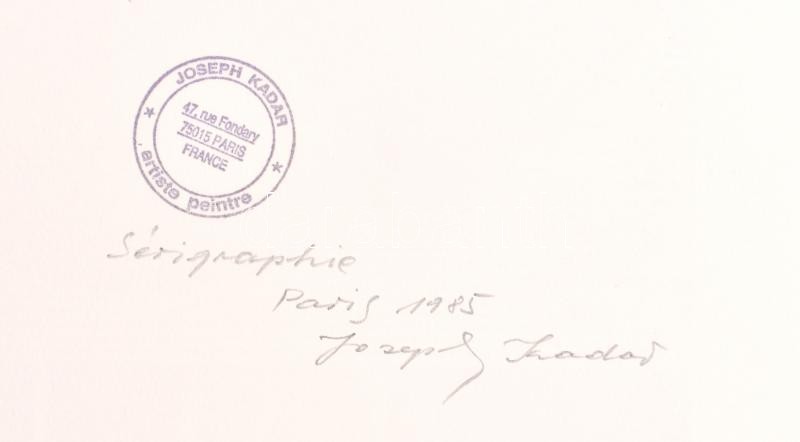 JOSEPH KADAR
47, rue Fondary
75015 PARIS
FRANCE
* artiste peintre *
Sérigraphie
Paris 1985
Joseph Kadar